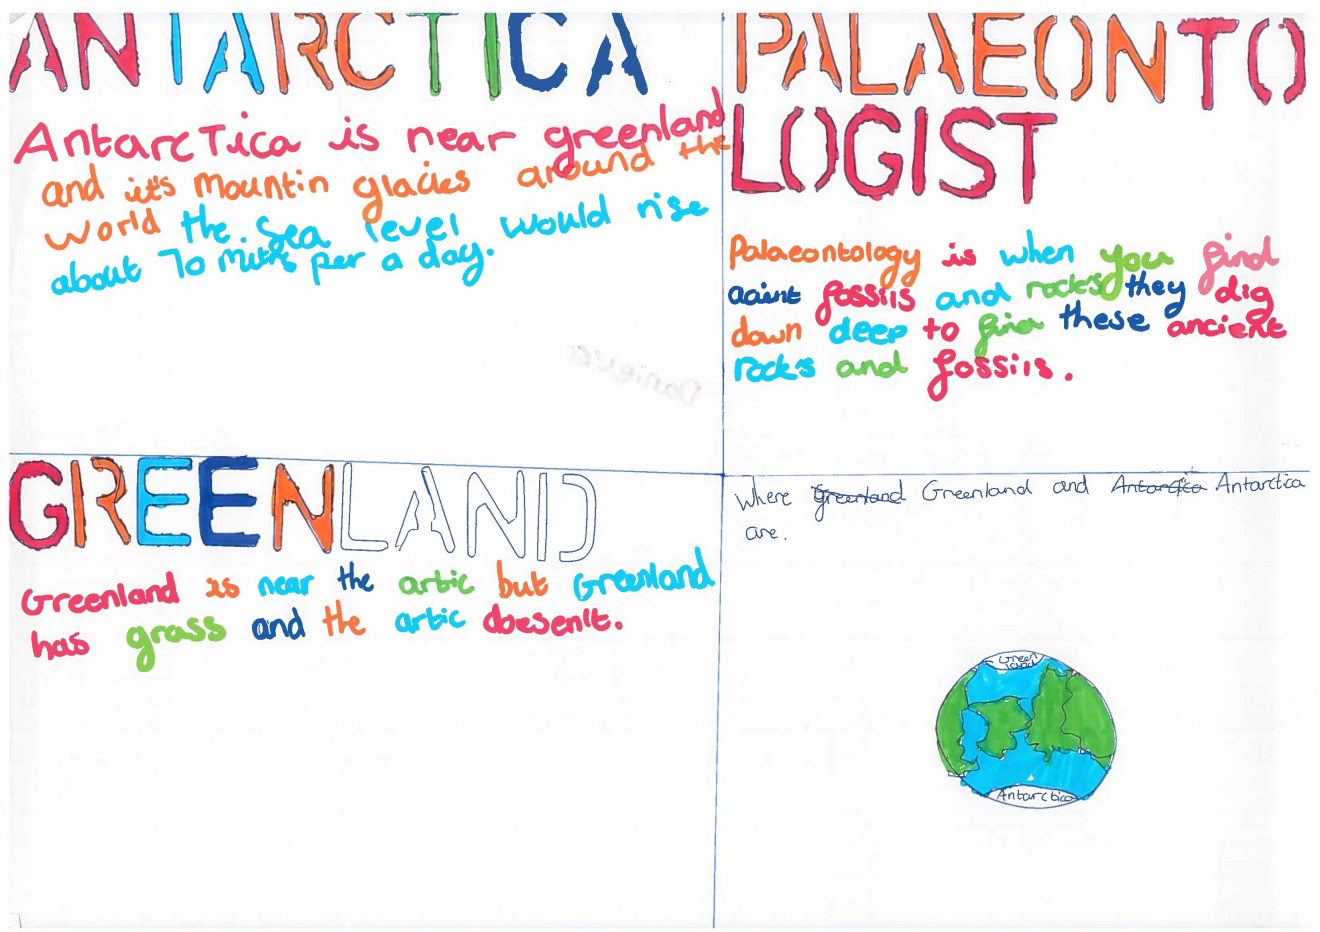 ANTARCTICA
Antarctica is near greenland
and it's mountin glacies around the
world the sea level would rise
about 70 per a day.
PALAEONTO
LOGIST
Palaeontology is when you find
fossils and rocks they dig
down deep to find these ancient
rocks and fossils.
GREENLAND
Greenland is near the artic but Greenland
has grass and the artic doesent.
Where Greenland Greenland and Antarctica Antarctica
are.
Green
land
Antarctica